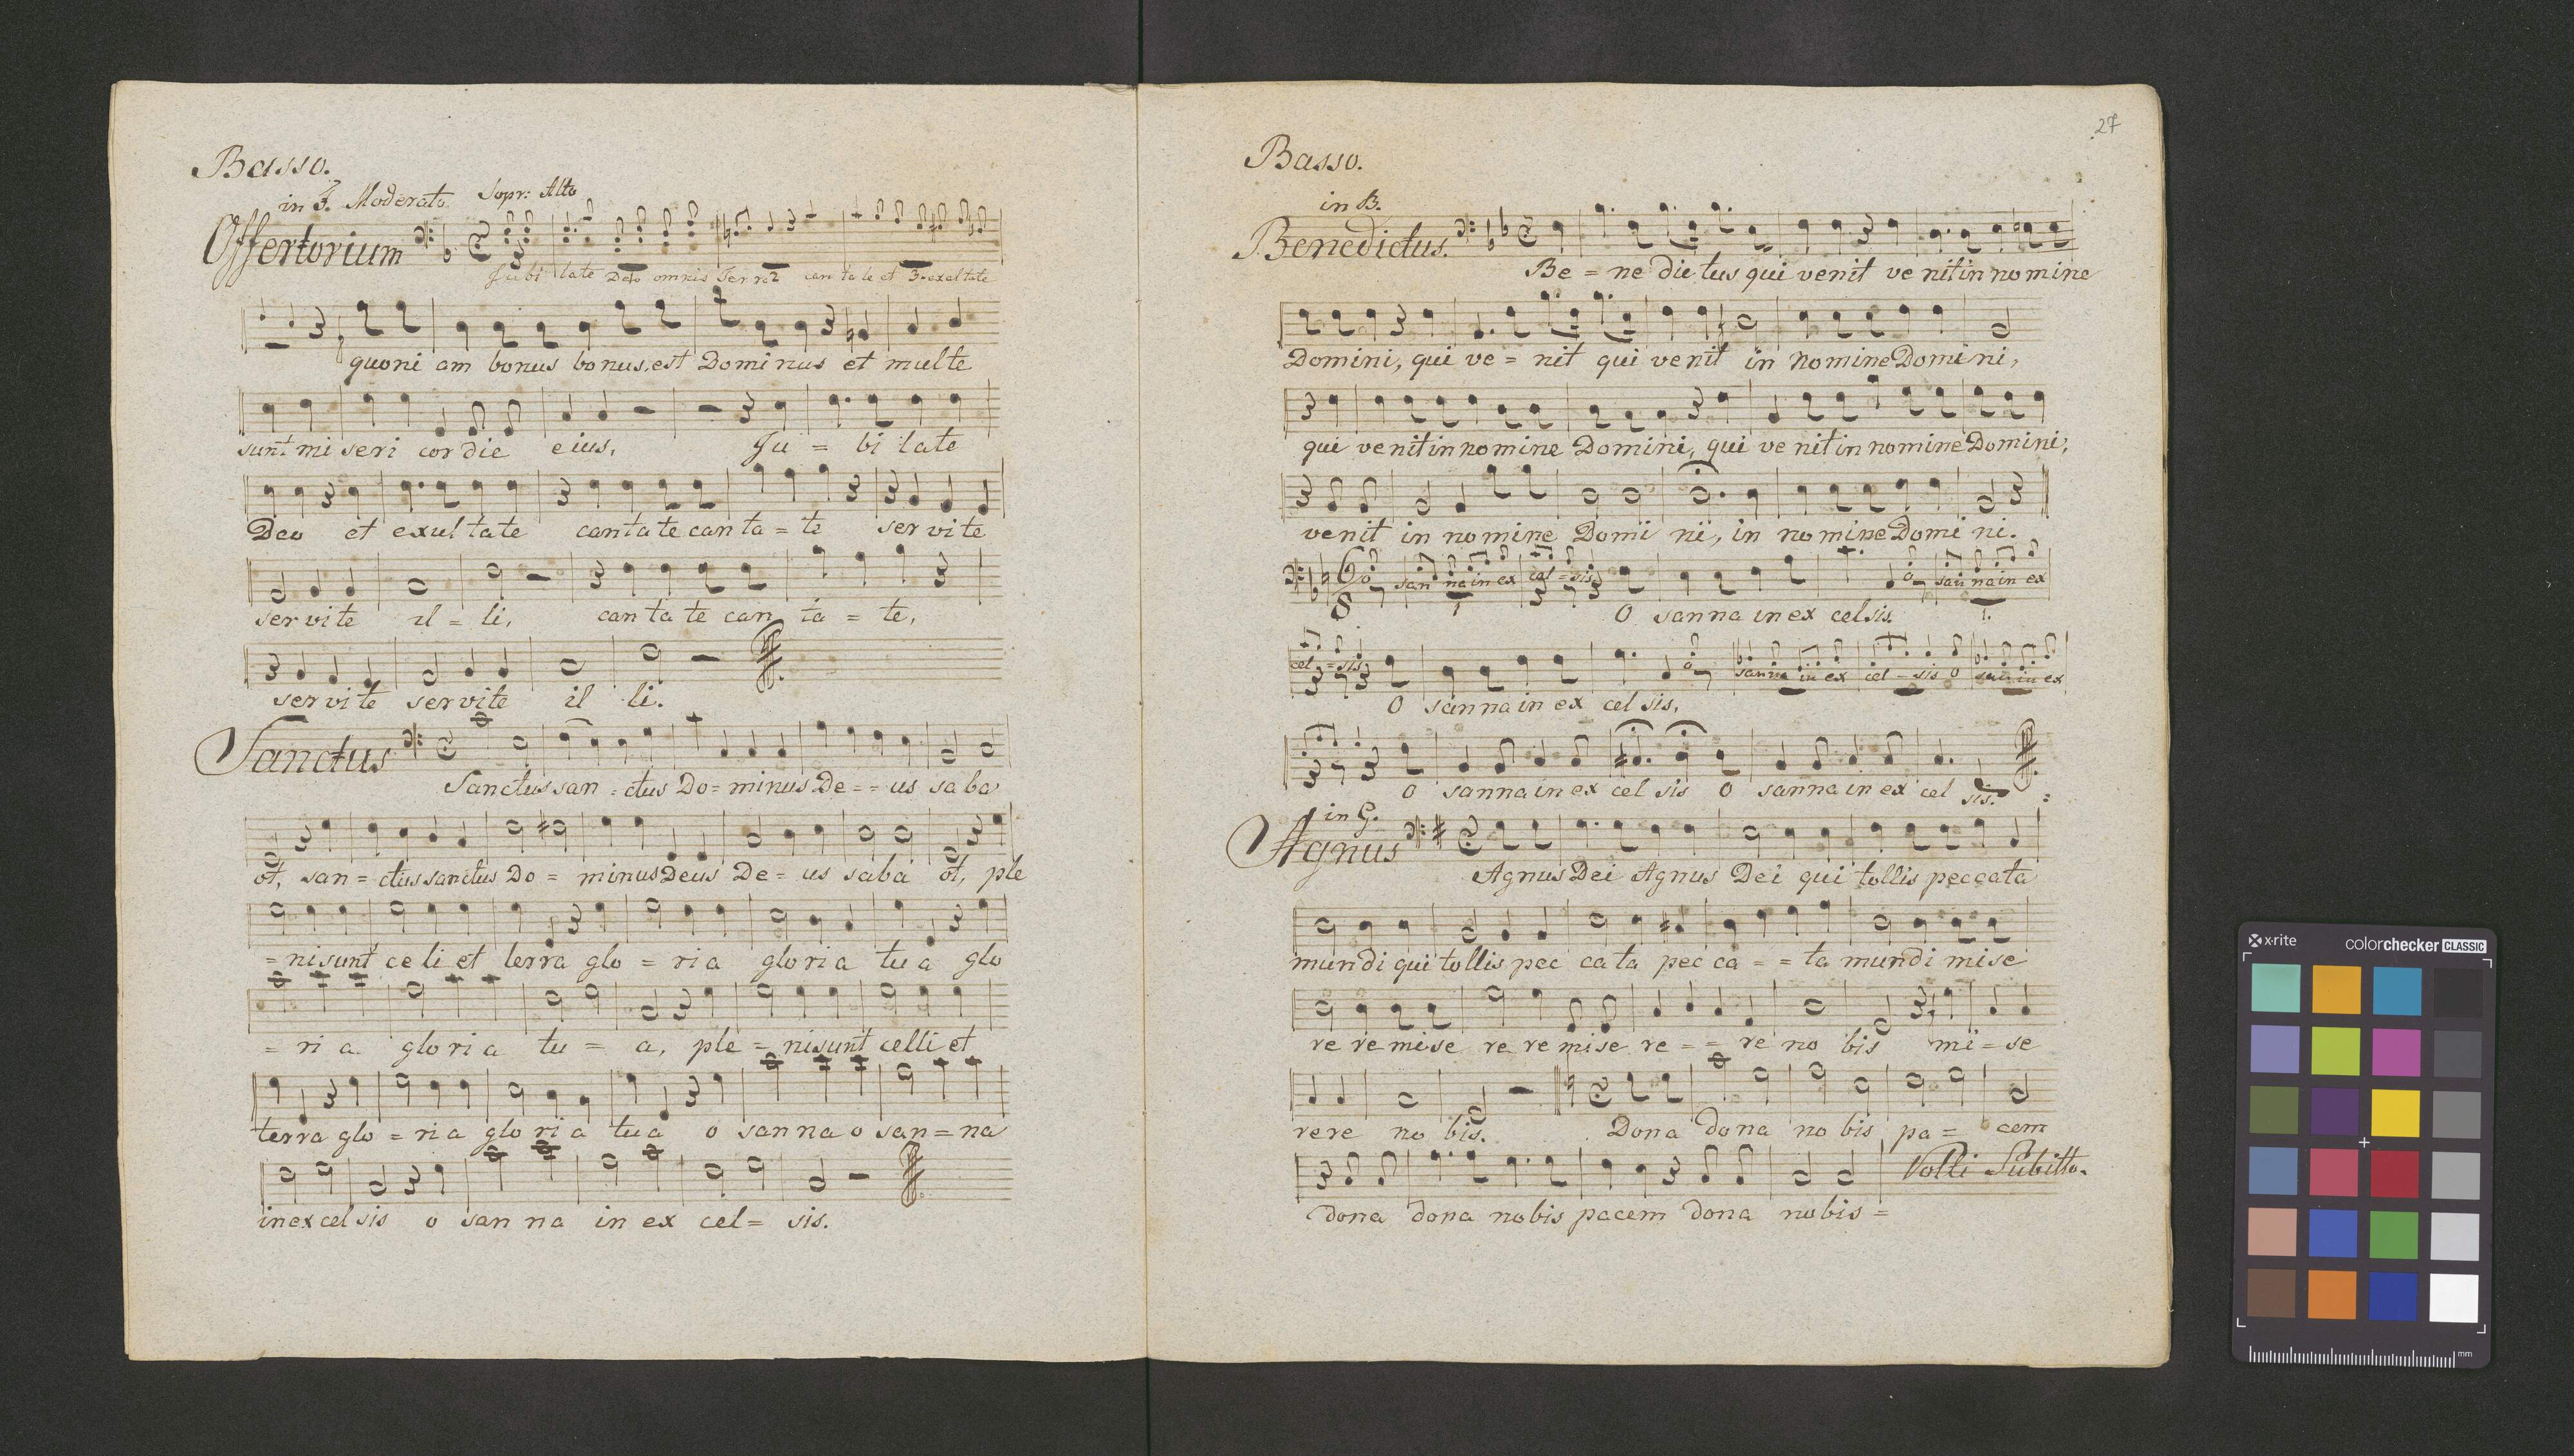 Basso.
in F. Moderato. Sopr: Alto
Offertorium
Jubi late Deo omnis Terra 2 can ta te et 3 exaltate
quoni am bonus bonus, est Dominus et multe
sunt mi seri cor die eius, Ju = bi late
Deo et exul tate cantate can ta = te ser vi te
ser vi te il = li, can ta te can ta = te,
ser vi te ser vite il li.
Sanctus
Sanctus san = ctus Do = minus De = = us sa ba
ot, san = ctus sanctus Do = minus Deus De = us saba ot, ple
= ni sunt ce li et terra glo = ri a gloria tu a glo
= ri a glo ri a tu = a, ple = ni sunt celli et
terra glo = ri a glo ri a tu a o san na o san = na
in ex cel sis o san na in ex cel = sis.
27
Basso.
in B.
Benedictus.
Be = ne dictus qui venit ve nit in no mine
Domini, qui ve = nit qui ve nit in nomine Domi ni,
qui ve nit in nomine Domini, qui ve nit in nomine Domini,
venit in no mine Domi ni, in no mine Domi ni.
6
8
o san na in ex cel = sis o san na in ex
O san na in ex cel sis.
cel = sis o sanna in ex cel = sis o san in ex
O san na in ex cel sis,
o san na in ex cel sis o san na in ex cel sis.
in G.
Agnus
Agnus Dei Agnus Dei qui tollis peccata
mundi qui tollis pec ca ta pec ca = = ta mundi mi se
re re mi se re re mi se re = = re no bis mi = se
re re no bis. Dona dona no bis pa = cem
dona dona nobis pacem dona nobis =
Volti Subitto.
x-rite colorchecker CLASSIC
mm